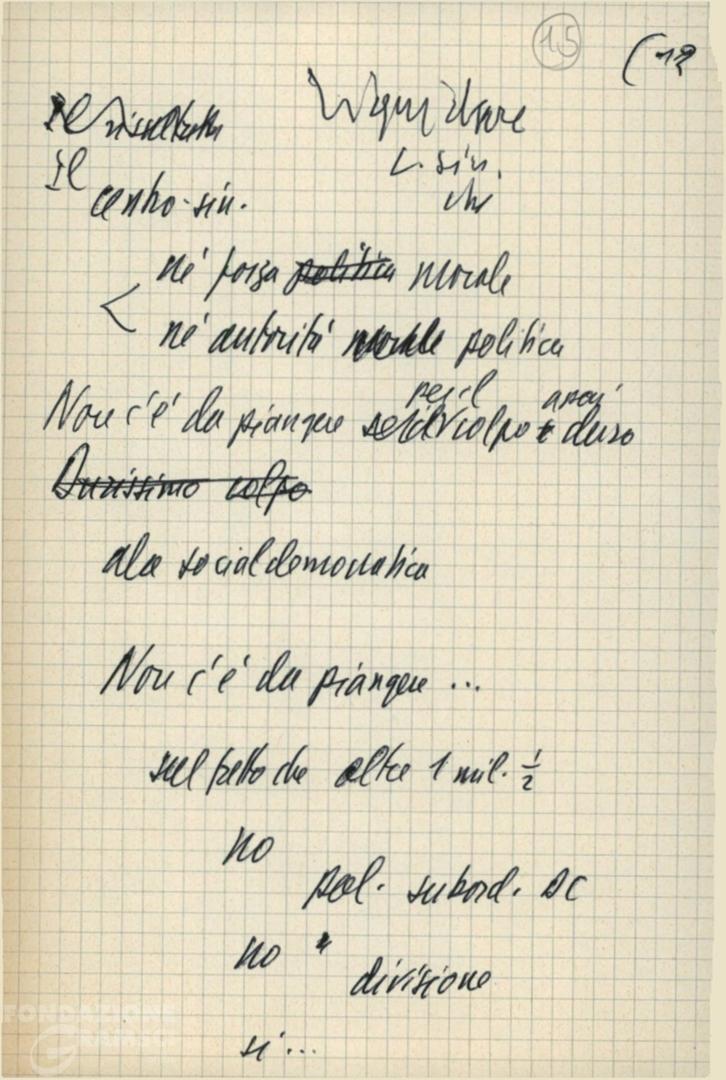 15 (12
Il risultato
Liquidare
Il
c. sin.
centro-sin.
né forza politica morale
né autorità morale politica
Non c'è da piangere per il colpo assai duro
Durissimo colpo
ala socialdemocratica
Non c'è da piangere ...
sul fatto che oltre 1 mil. ½
no
pol. subord. DC
no
divisione
si...
FONDAZIONE
GRAMSCI